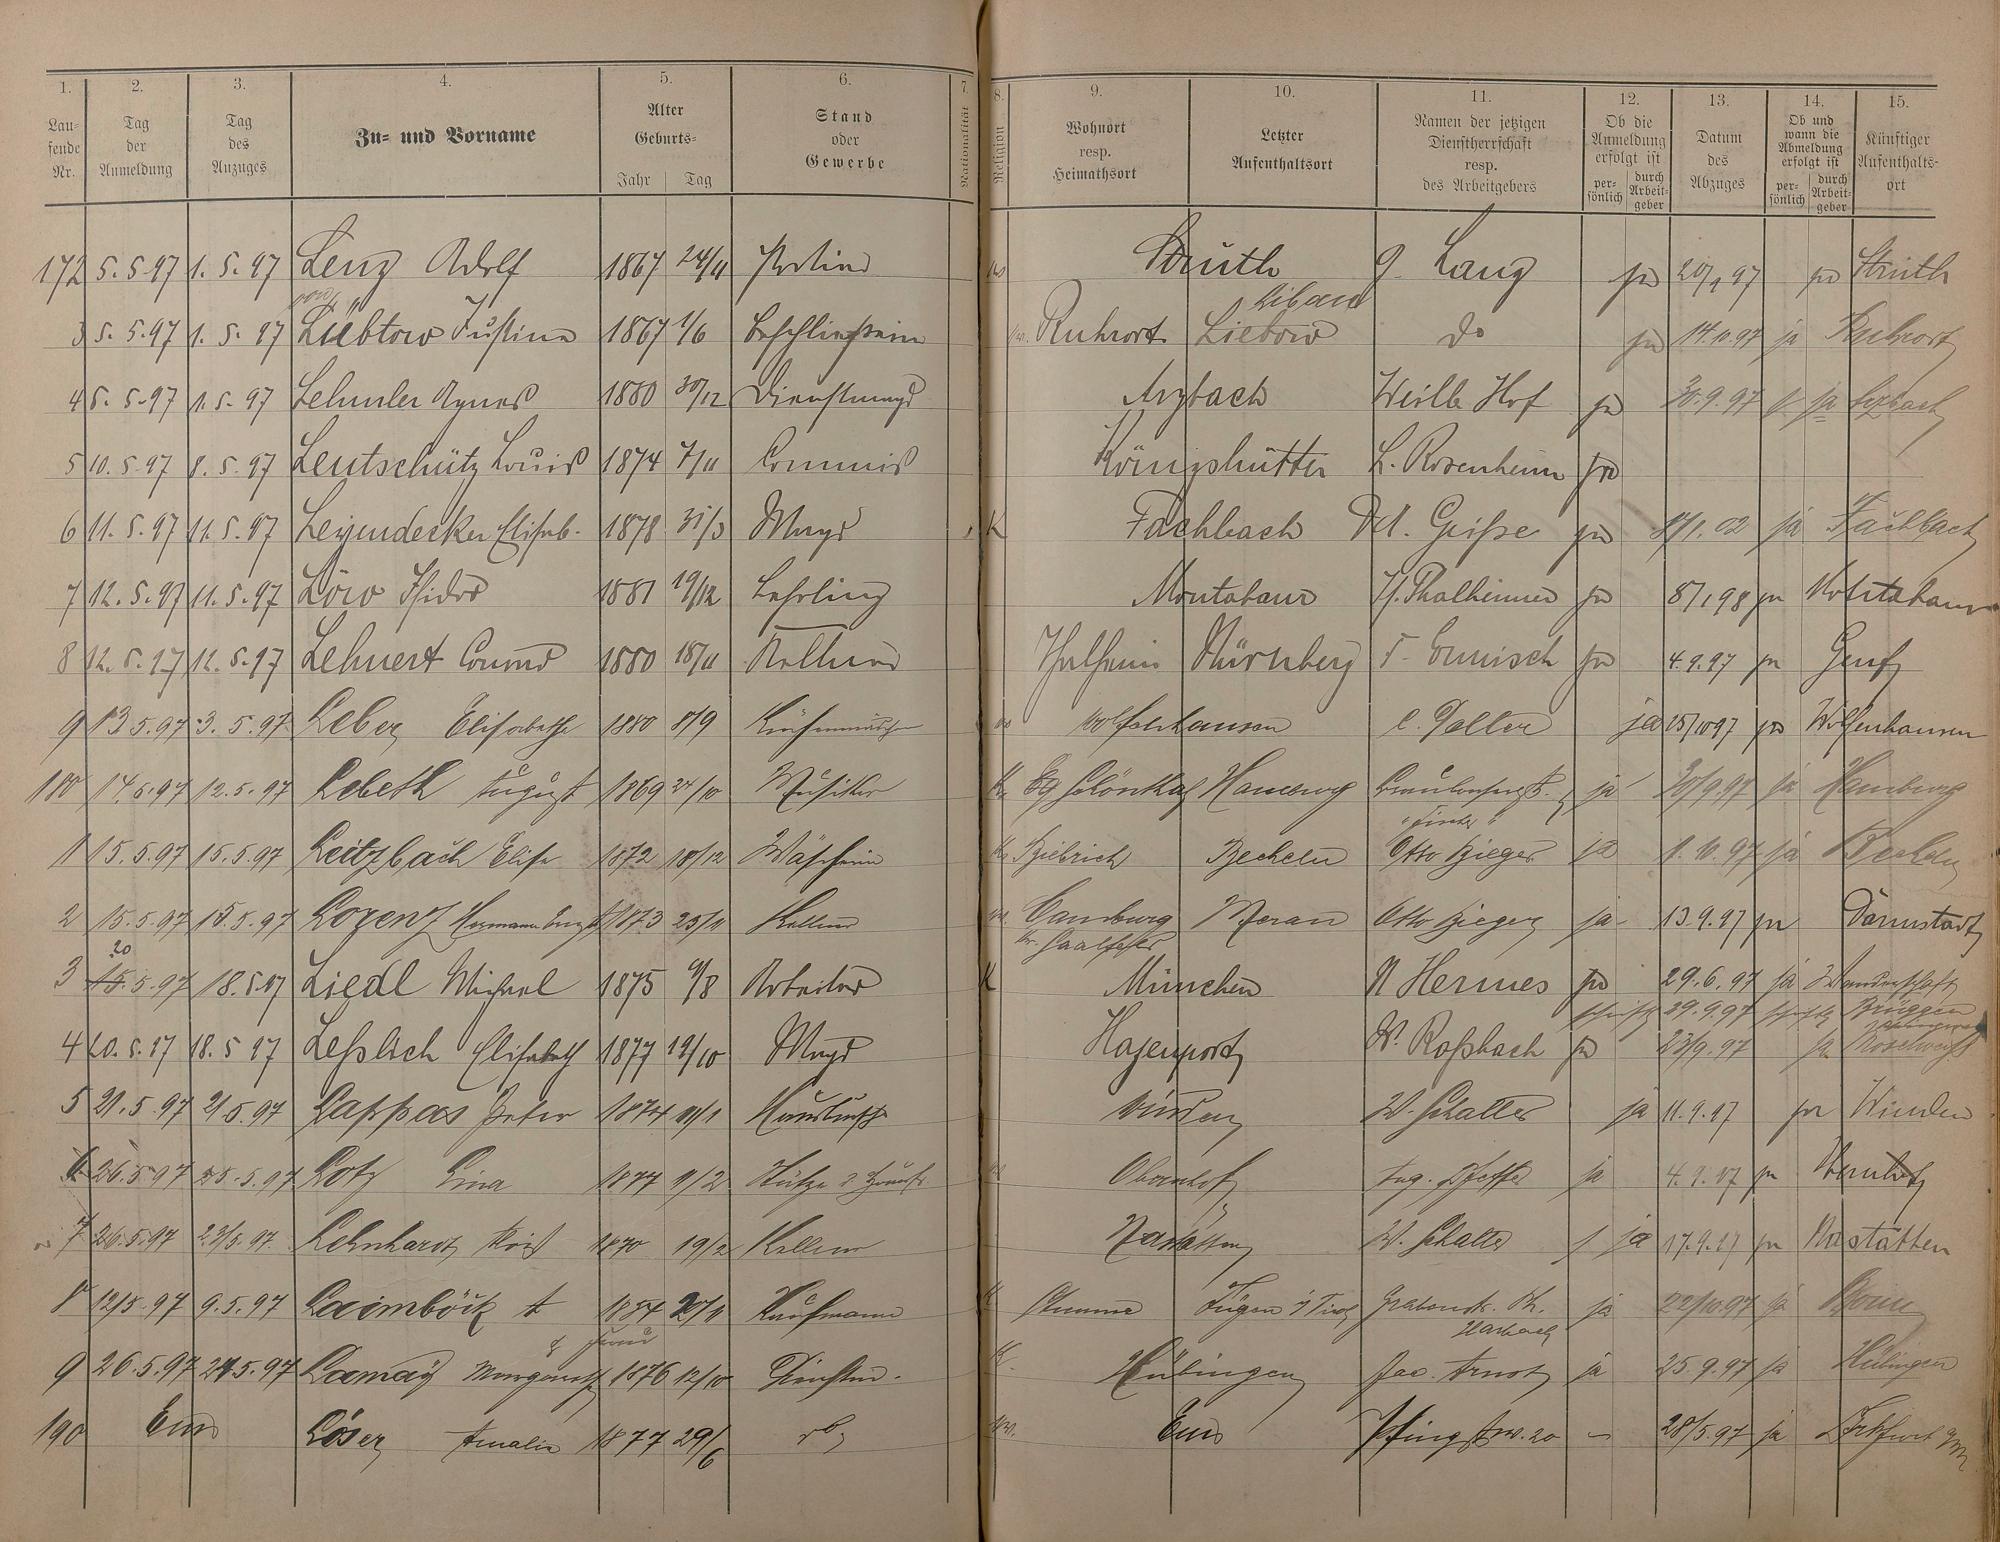 1. 2. 3. 4. 5. 6. 7. 8. 9. 10. 11. 12. 13. 14. 15.
Lau-
fende
Nr.
Tag
der
Anmeldung
Tag
des
Anzuges
Zu- und Vorname
Alter
Geburts-
Jahr Tag
Stand
oder
Gewerbe
Nationalität
Religion
Wohnort
resp.
Heimathsort
Letzter
Aufenthaltsort
Namen der jetzigen
Dienstherrschaft
resp.
des Arbeitgebers
Ob die
Anmeldung
erfolgt ist
per-
sönlich
durch
Arbeit-
geber
Datum
des
Abzuges
Ob und
wann die
Abmeldung
erfolgt ist
per-
sönlich
durch
Arbeit-
geber
Künftiger
Aufenthalts-
ort
172 5.5.97 1.5.97 Lenz Adolf 1867 24/11 Struth G. Lang ja 97 ja Struth
von Libau
3 5.5.97 1.5.97 Liebtow Justine 1867 1/6 Beschließerin Ruhrort Liebow do ja 14.10.97 ja Ruhrort
4 5.5.97 1.5.97 Lehmler Agnes 1880 30/12 Dienstmagd Arzbach Weilb. Hof ja 30.9.97 ja Arzbach
5 10.5.97 8.5.97 Leutschütz Louis 1874 7/11 Commis Königshütte L. Rosenheim ja
6 11.5.97 11.5.97 Leyendecker Elisab. 1878 31/3 Magd K Fachbach Geiße ja 8/1.02 ja Fachbach
7 12.5.97 11.5.97 Löw Isidor 1881 19/12 Lehrling Montabaur H. Thalheimer ja 8/1 98 ja Montabaur
8 12.5.97 12.5.97 Lehnert Conrad 1880 18/11 Kellner Nürnberg Ermisch ja 4.9.97 ja Genf
9 13.5.97 3.5.97 Leber Elisabetha 1880 8/9 Küchenmädchen Wolfenhausen ja 15/10 97 ja Wolfenhausen
180 14.5.97 12.5.97 Lebeth August 1869 24/10 Musiker K. Hamburg ja 30/9.97 ja Hamburg
1 15.5.97 15.5.97 Leitzbach Elise 1872 18/12 Wäscherin Biebrich Becheln Otto Bieger ja 1.10.97 ja Becheln
2 15.5.97 15.5.97 Lorenz Hermann Ernst 1873 23/11 Kellner Camburg Meran Otto Bieger ja 13.9.97 ja Darmstadt
20
3 15.5.97 18.5.97 Liedl Michael 1875 9/8 Arbeiter K München N Hermes ja 29.6.97 ja Wanderschaft
29.9.97 Brüggen
4 20.5.97 18.5.97 Leßlich Elisabeth 1877 19/10 Magd Hagenport W. Roßbach ja 23/9.97 ja
5 21.5.97 21.5.97 Lappas Peter 1874 11/1 Hausbursche Winden W. Schatter ja 11.9.97 ja Winden
6 26.5.97 25.5.97 Lotz Lina 1877 9/2 Stütze d. Hausfr. Obernhof Aug. Pfeffer ja 4.9.97 ja Obernhof
7 26.5.97 23/5.97 Lehnhardt 1870 19/2 Kellner Nastätten W. Schatter ja 17.9.97 ja Nastätten
8 12/5.97 9.5.97 Laimböck A 1854 20/11 Kaufmann Fügen i/Tirol Grabenstr. ja 22/10.97 ja
Harbach
9 26.5.97 24.5.97 Lamay Margareth 1876 12/10 Dienstm. K. Hübingen Jac. Arnst ja 25.9.97 ja Hübingen
190 Ems Löser Amalie 1877 29/6 Ems Pfingstw. 20 - 28/5.97 ja Frkfurt a/M